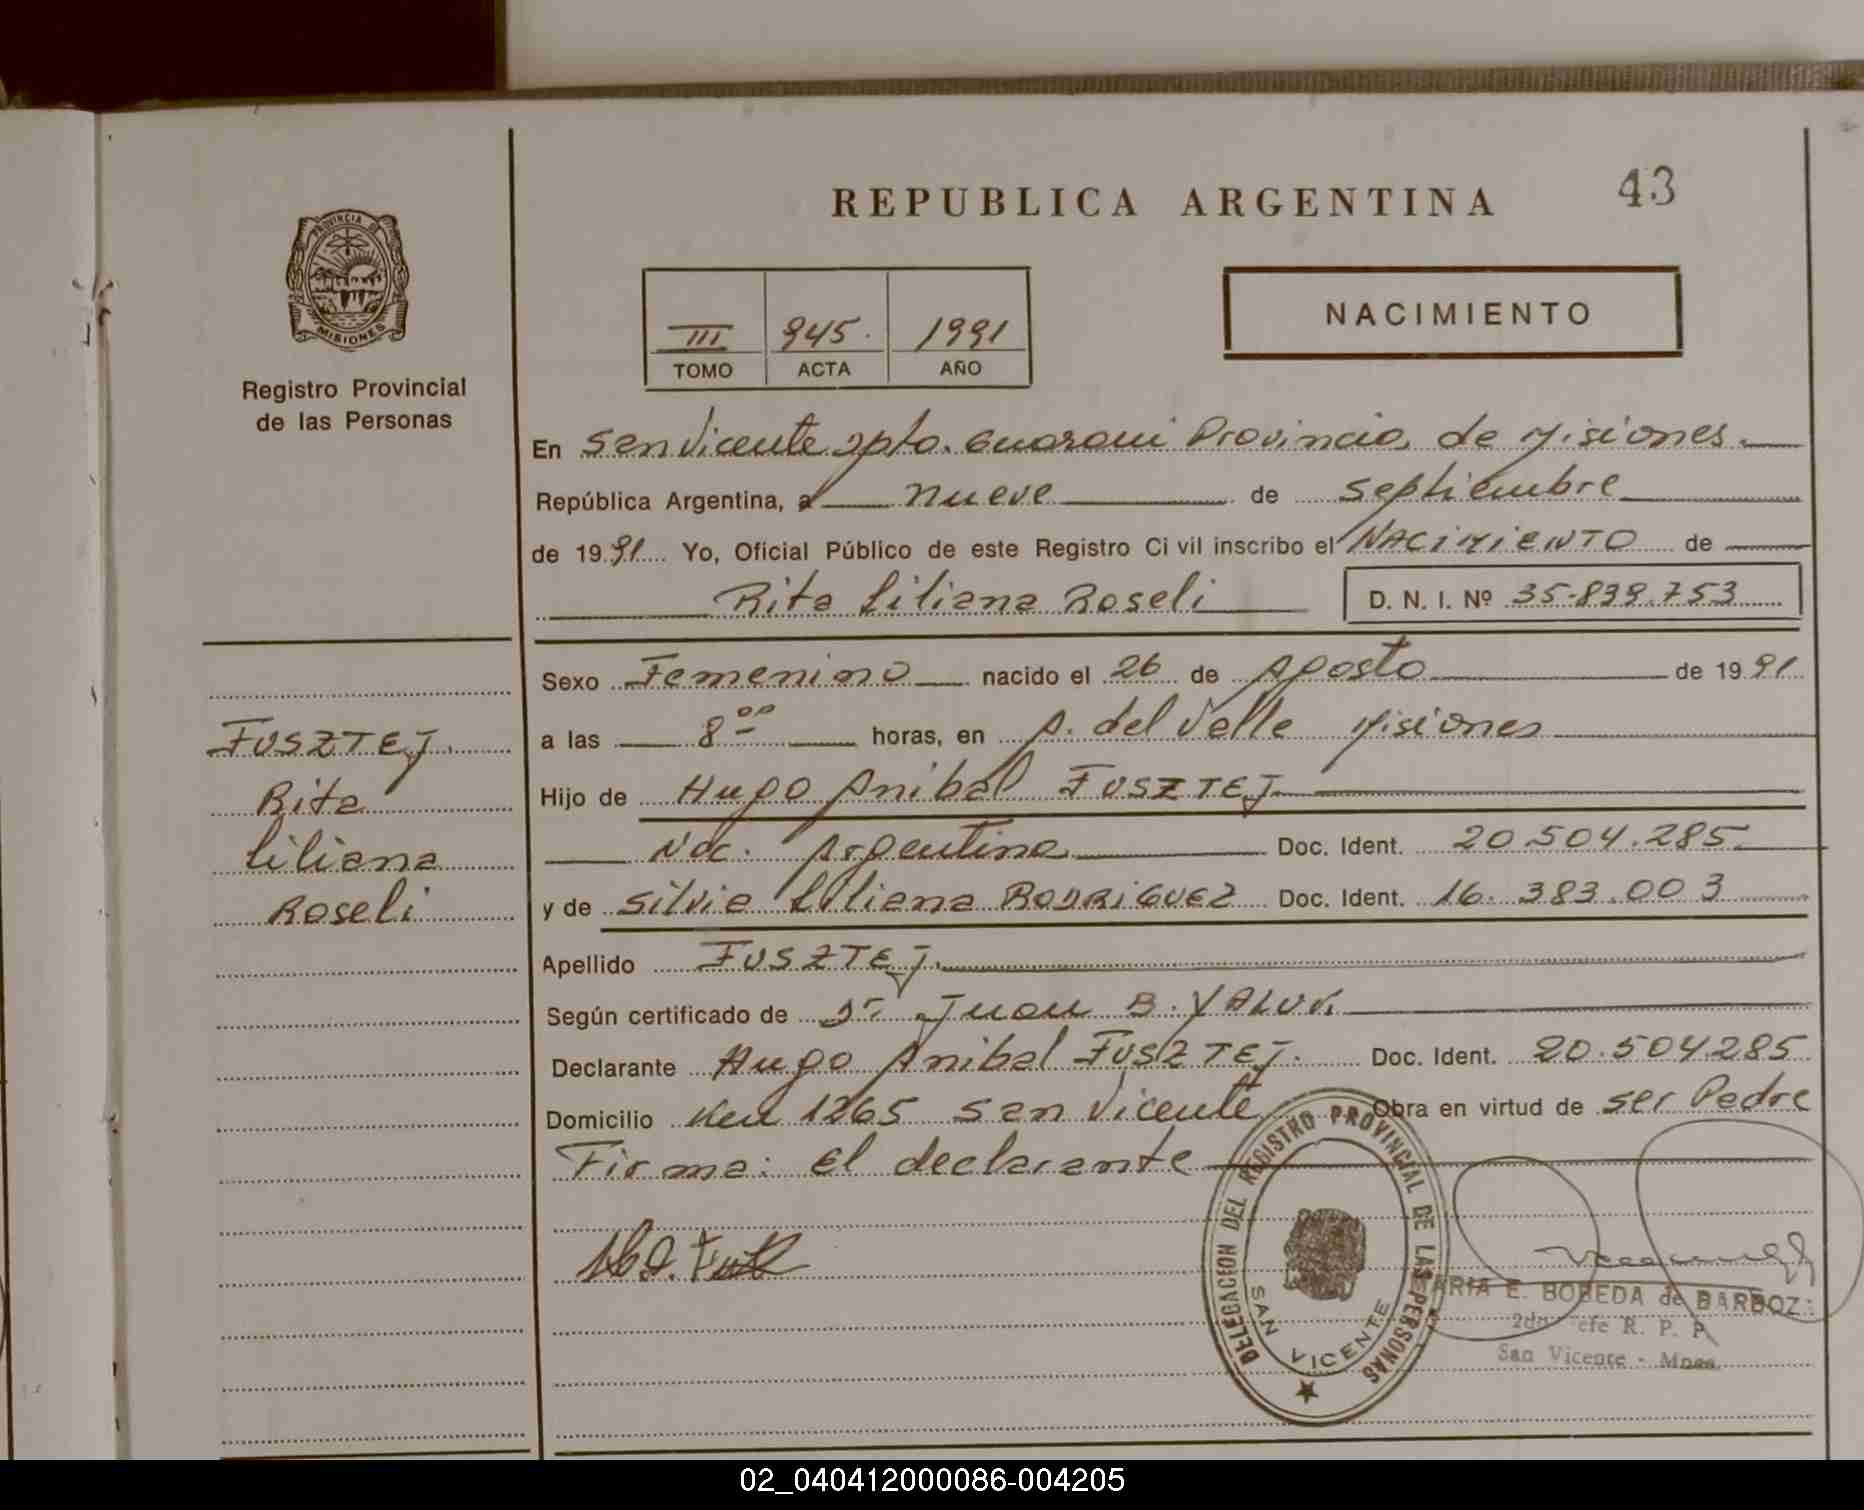 REPUBLICA ARGENTINA
43
PROVINCIA DE
MISIONES
Registro Provincial
de las Personas
III 945. 1991
TOMO ACTA AÑO
NACIMIENTO
En San Vicente Dpto. Guarani Provincia de Misiones.
República Argentina, a nueve de septiembre
de 1991 Yo, Oficial Público de este Registro Civil inscribo el NACIMIENTO de
Rita Liliana Roseli D. N. I. Nº 35.839.753
Sexo Femenino nacido el 26 de Agosto de 1991
a las 8 00 horas, en A. del Valle Misiones
Hijo de Hugo Anibal FUSZTEJ
Nac. Argentina Doc. Ident. 20.504.285.
y de Silvia Liliana RODRIGUEZ Doc. Ident. 16.383.003
Apellido FUSZTEJ.
Según certificado de Dr Juan B.
Declarante Hugo Anibal FUSZTEJ. Doc. Ident. 20.504.285
Domicilio Km 1265 San Vicente Obra en virtud de ser Padre
Firma: El declarante
FUSZTEJ.
Rita
Liliana
Roseli
DELEGACION DEL REGISTRO PROVINCIAL DE LAS PERSONAS
SAN VICENTE
ARIA E. BOBEDA de BARBOZ
R. P. P.
San Vicente - Mnes.
02_040412000086-004205